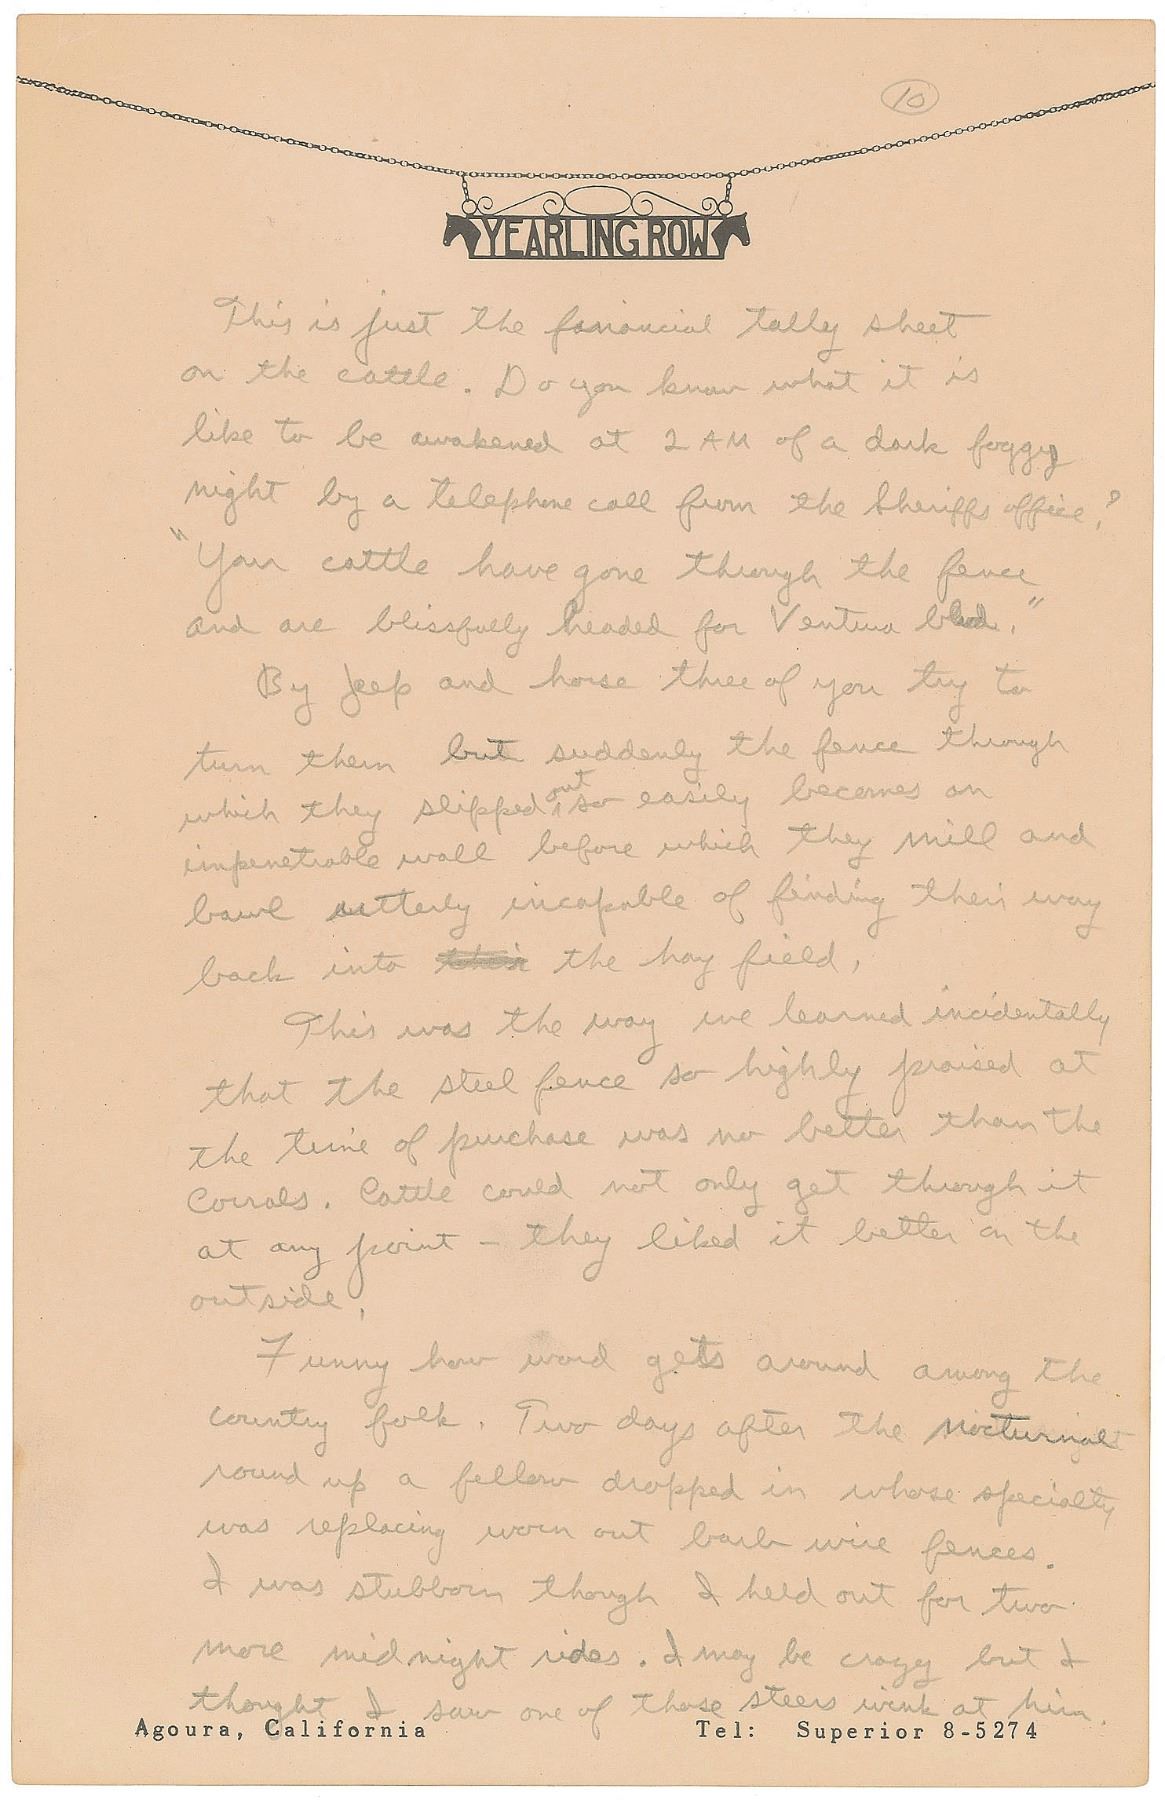 10
YEARLING ROW
This is just the fanancial tally sheet
on the cattle. Do you know what it is
like to be awakened at 2 AM of a dark foggy
night by a telephone call from the Sheriffs office?
"Your cattle have gone through the fence
and are blissfully headed for Ventura blvd."
By Jeep and horse three of you try to
turn them but suddenly the fence through
out
which they slipped so easily becomes an
impenetrable wall before which they mill and
bawl utterly incapable of finding their way
back into their the hay field.
This was the way we learned incidentally
that the steel fence so highly praised at
the time of purchase was no better than the
Corrals. Cattle could not only get through it
at any point – they liked it better on the
outside.
Funny how word gets around among the
country folk. Two days after the nocturnal
round up a fellow dropped in whose specialty
was replacing worn out barb wire fences.
I was stubborn though I held out for two
more midnight rides. I may be crazy but I
thought I saw one of those steers wink at him.
Agoura, California Tel: Superior 8-5274